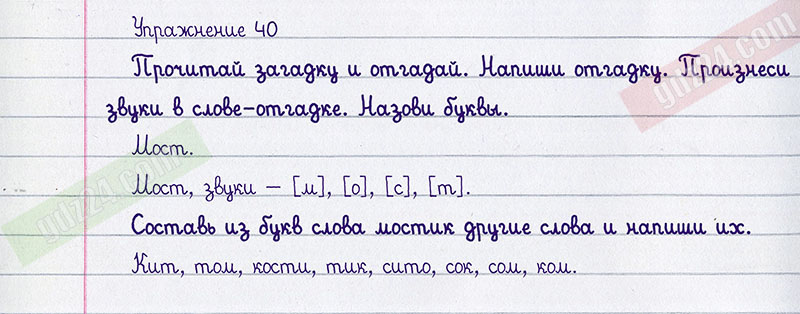 Упражнение 40
Прочитай загадку и отгадай. Напиши отгадку. Произнеси
звуки в слове-отгадке. Назови буквы.
Мост.
Мост, звуки – [м], [о], [с], [т].
Составь из букв слова мостик другие слова и напиши их.
Кит, том, кости, тик, сито, сок, сом, ком.
gdz24.com
gdz24.com